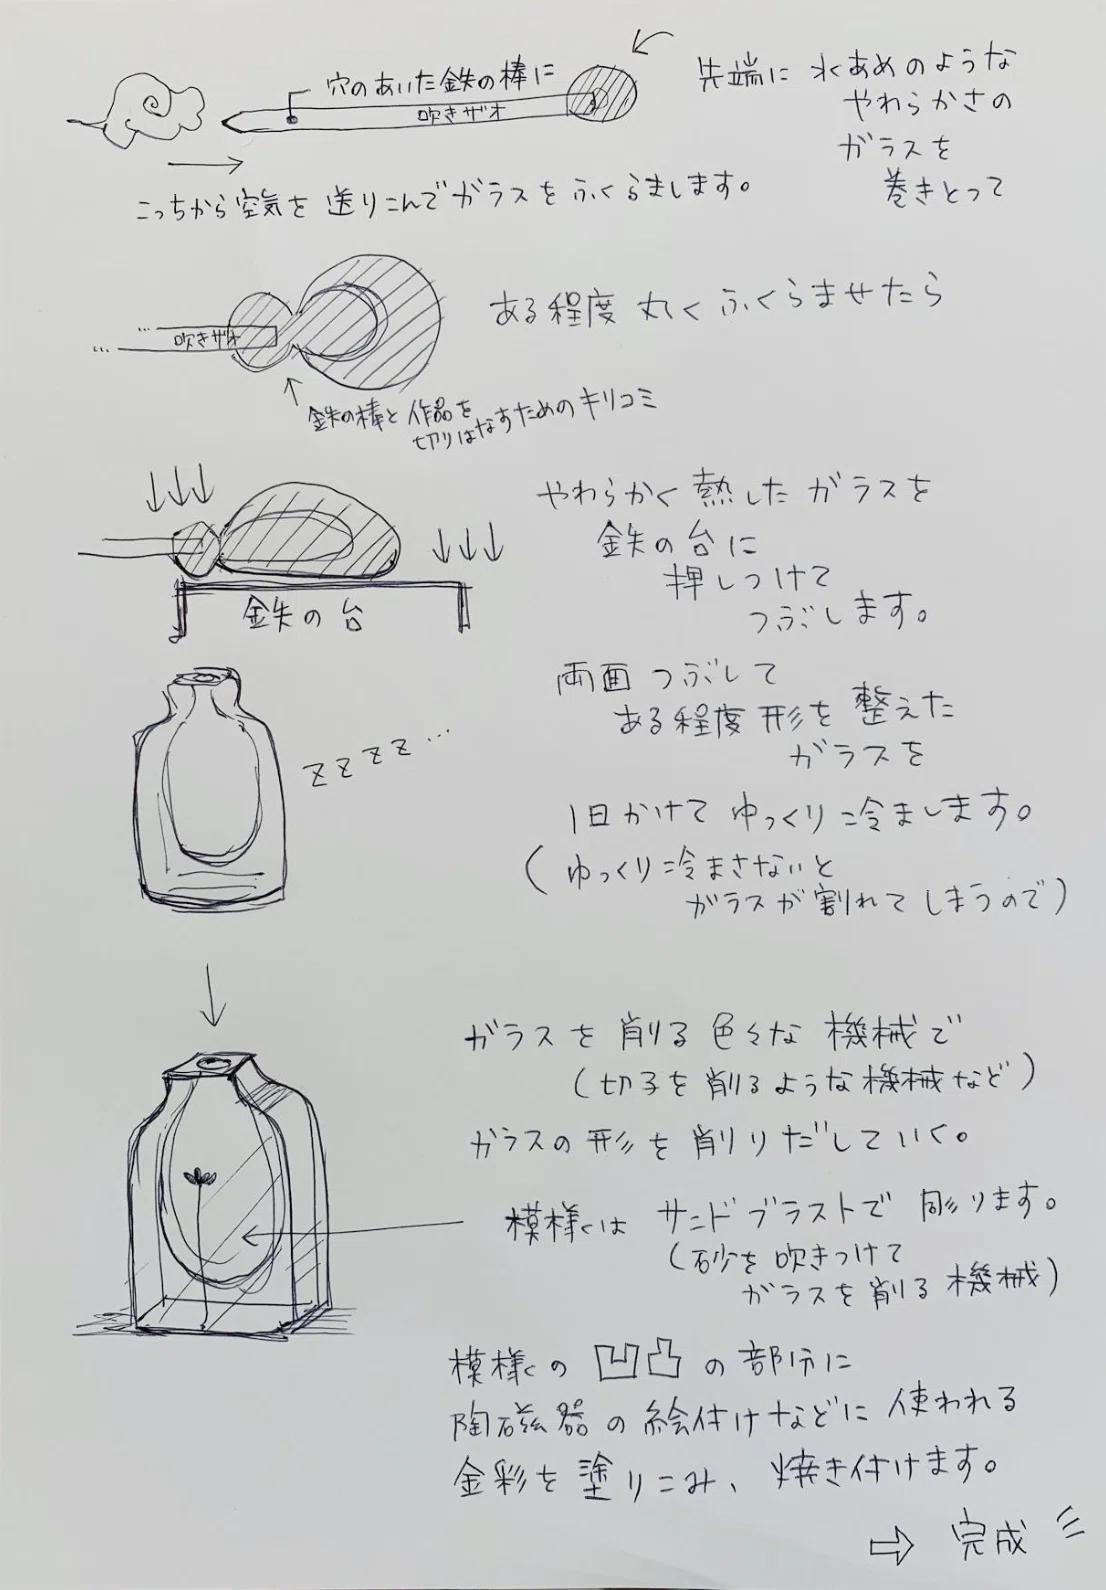 穴のあいた鉄の棒に
吹きザオ
先端に 水あめのような
やわらかさの
ガラスを
巻きとって
こっちから空気を 送りこんでガラスを ふくらまします。
ある程度 丸く ふくらませたら
吹きザオ
鉄の棒と 作品を
切りはなすためのキリコミ
やわらかく 熱した ガラスを
鉄の台に
押しつけて
つぶします。
鉄の台
両面 つぶして
ある程度 形を 整えた
ガラスを
zzzz…
1日かけて ゆっくり 冷まします。
(ゆっくり 冷まさないと
ガラスが 割れて しまうので)
ガラスを 削る 色々な 機械で
(切子を 削るような 機械など)
ガラスの 形を 削りだしていく。
模様は サンドブラストで 彫ります。
(砂を 吹きつけて
ガラスを 削る 機械)
模様の 凹凸の 部分に
陶磁器の 絵付けなどに 使われる
金彩を 塗りこみ、焼き付けます。
⇨ 完成